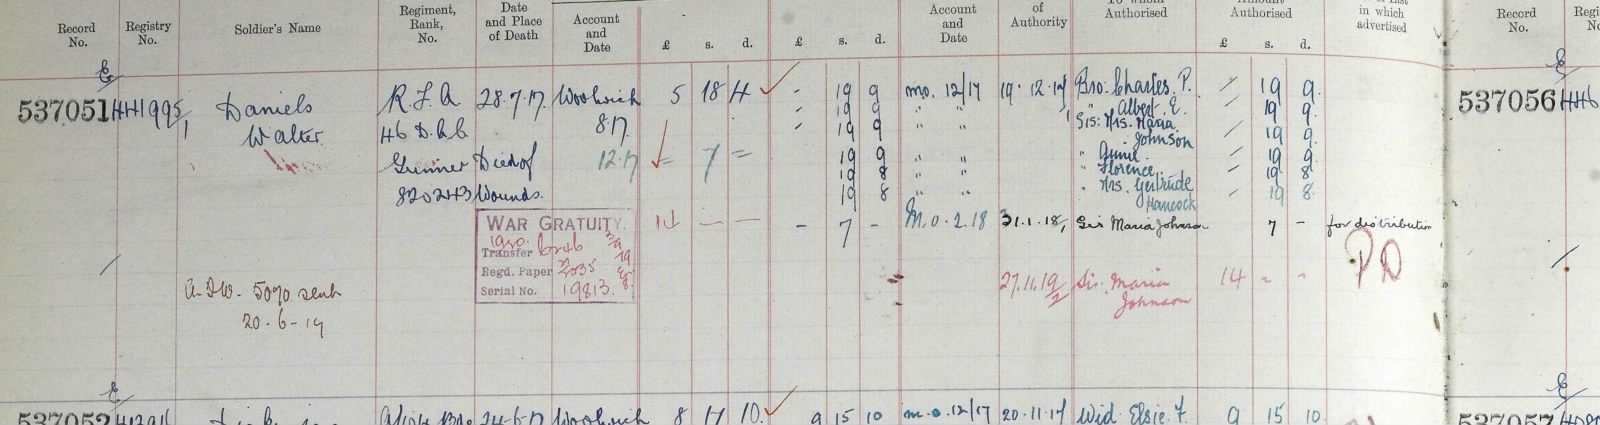 Record No.
Registry No.
Soldier's Name
Regiment, Rank, No.
Date and Place of Death
Account and Date
£ s. d.
£ s. d.
Account and Date
of Authority
To whom Authorised
Authorised
£ s. d.
in which advertised
Record No.
537051 Daniels R.F.A 28.7.17. Woolwich 5 18 4 - 19 9 mo. 12/17 19.12.17 Bro. Charles P. 19 9.
19 9 " " " Albert E. 19 9.
Walter. 46 D.A.C. 8.17. 19 9 " " Sis: Mrs. Maria Johnson 19 9.
Gunner Died of 12.17 = 7 = 19 9 " " " 19 9.
19 8 " " " Florence. 19 8
820243 Wounds. 19 8 " " " Mrs. Gertrude Hancock 19 8.
WAR GRATUITY. 14 — — - 7 - M.O. 2.18 31.1.18, Sis Maria Johnson 7 - for distribution
Transfer
Regd. Paper
Serial No. 19813.
27.11.19 Sis. Maria Johnson 14 - -
PD
5070 sent
20-6-19
537052 24-6-17 Woolwich 8 17 10. 9 15 10 m.o. 12/17 20.11.17 Wid. Elsie F. 9 15 10.
537056
537057